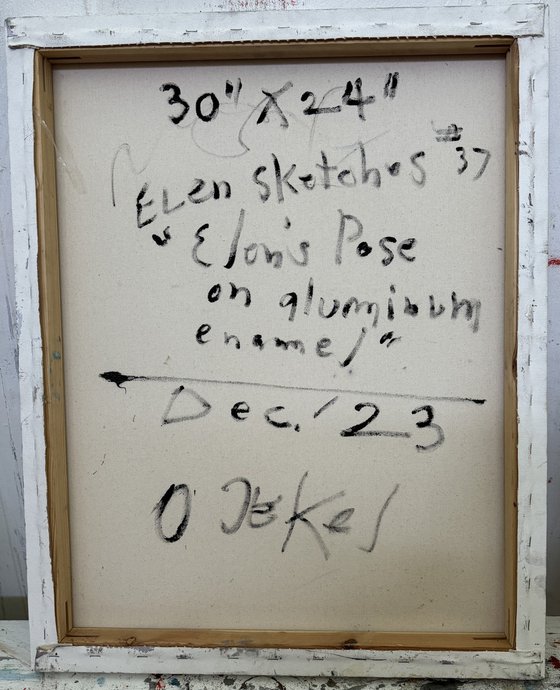 30" X 24"
Elen sketches #37
"Elon's Pose
on aluminum
enamel"
Dec. '23
O